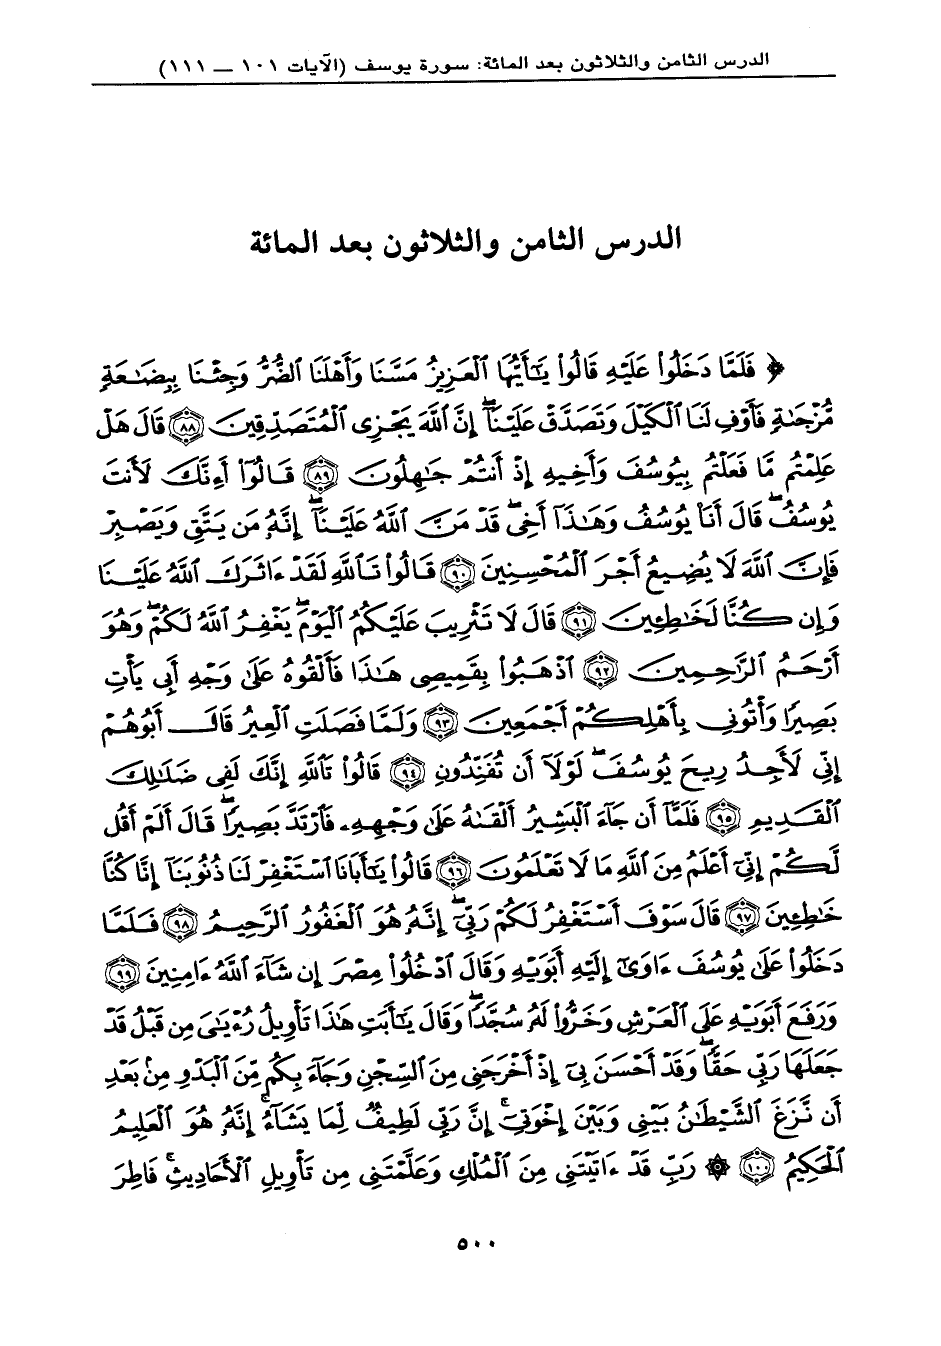 الدرس الثامن والثلاثون بعد المائة: سورة يوسف (الآيات ١٠١ — ١١١)
الدرس الثامن والثلاثون بعد المائة
﴿ فَلَمَّا دَخَلُوا۟ عَلَيْهِ قَالُوا۟ يَـٰٓأَيُّهَا ٱلْعَزِيزُ مَسَّنَا وَأَهْلَنَا ٱلضُّرُّ وَجِئْنَا بِبِضَـٰعَةٍ
مُّزْجَىٰةٍ فَأَوْفِ لَنَا ٱلْكَيْلَ وَتَصَدَّقْ عَلَيْنَآ ۖ إِنَّ ٱللَّهَ يَجْزِى ٱلْمُتَصَدِّقِينَ ﴿٨٨﴾ قَالَ هَلْ
عَلِمْتُم مَّا فَعَلْتُم بِيُوسُفَ وَأَخِيهِ إِذْ أَنتُمْ جَـٰهِلُونَ ﴿٨٩﴾ قَالُوٓا۟ أَءِنَّكَ لَأَنتَ
يُوسُفُ ۖ قَالَ أَنَا۠ يُوسُفُ وَهَـٰذَآ أَخِى ۖ قَدْ مَنَّ ٱللَّهُ عَلَيْنَآ ۖ إِنَّهُۥ مَن يَتَّقِ وَيَصْبِرْ
فَإِنَّ ٱللَّهَ لَا يُضِيعُ أَجْرَ ٱلْمُحْسِنِينَ ﴿٩٠﴾ قَالُوا۟ تَٱللَّهِ لَقَدْ ءَاثَرَكَ ٱللَّهُ عَلَيْنَا
وَإِن كُنَّا لَخَـٰطِـِٔينَ ﴿٩١﴾ قَالَ لَا تَثْرِيبَ عَلَيْكُمُ ٱلْيَوْمَ ۖ يَغْفِرُ ٱللَّهُ لَكُمْ ۖ وَهُوَ
أَرْحَمُ ٱلرَّٰحِمِينَ ﴿٩٢﴾ ٱذْهَبُوا۟ بِقَمِيصِى هَـٰذَا فَأَلْقُوهُ عَلَىٰ وَجْهِ أَبِى يَأْتِ
بَصِيرًا وَأْتُونِى بِأَهْلِكُمْ أَجْمَعِينَ ﴿٩٣﴾ وَلَمَّا فَصَلَتِ ٱلْعِيرُ قَالَ أَبُوهُمْ
إِنِّى لَأَجِدُ رِيحَ يُوسُفَ ۖ لَوْلَآ أَن تُفَنِّدُونِ ﴿٩٤﴾ قَالُوا۟ تَٱللَّهِ إِنَّكَ لَفِى ضَلَـٰلِكَ
ٱلْقَدِيمِ ﴿٩٥﴾ فَلَمَّآ أَن جَآءَ ٱلْبَشِيرُ أَلْقَىٰهُ عَلَىٰ وَجْهِهِۦ فَٱرْتَدَّ بَصِيرًا ۖ قَالَ أَلَمْ أَقُل
لَّكُمْ إِنِّىٓ أَعْلَمُ مِنَ ٱللَّهِ مَا لَا تَعْلَمُونَ ﴿٩٦﴾ قَالُوا۟ يَـٰٓأَبَانَا ٱسْتَغْفِرْ لَنَا ذُنُوبَنَآ إِنَّا كُنَّا
خَـٰطِـِٔينَ ﴿٩٧﴾ قَالَ سَوْفَ أَسْتَغْفِرُ لَكُمْ رَبِّىٓ ۖ إِنَّهُۥ هُوَ ٱلْغَفُورُ ٱلرَّحِيمُ ﴿٩٨﴾ فَلَمَّا
دَخَلُوا۟ عَلَىٰ يُوسُفَ ءَاوَىٰٓ إِلَيْهِ أَبَوَيْهِ وَقَالَ ٱدْخُلُوا۟ مِصْرَ إِن شَآءَ ٱللَّهُ ءَامِنِينَ ﴿٩٩﴾
وَرَفَعَ أَبَوَيْهِ عَلَى ٱلْعَرْشِ وَخَرُّوا۟ لَهُۥ سُجَّدًا ۖ وَقَالَ يَـٰٓأَبَتِ هَـٰذَا تَأْوِيلُ رُءْيَـٰىَ مِن قَبْلُ قَدْ
جَعَلَهَا رَبِّى حَقًّا ۖ وَقَدْ أَحْسَنَ بِىٓ إِذْ أَخْرَجَنِى مِنَ ٱلسِّجْنِ وَجَآءَ بِكُم مِّنَ ٱلْبَدْوِ مِنۢ بَعْدِ
أَن نَّزَغَ ٱلشَّيْطَـٰنُ بَيْنِى وَبَيْنَ إِخْوَتِىٓ ۚ إِنَّ رَبِّى لَطِيفٌ لِّمَا يَشَآءُ ۚ إِنَّهُۥ هُوَ ٱلْعَلِيمُ
ٱلْحَكِيمُ ﴿١٠٠﴾ ۞ رَبِّ قَدْ ءَاتَيْتَنِى مِنَ ٱلْمُلْكِ وَعَلَّمْتَنِى مِن تَأْوِيلِ ٱلْأَحَادِيثِ ۚ فَاطِرَ
٥٠٠